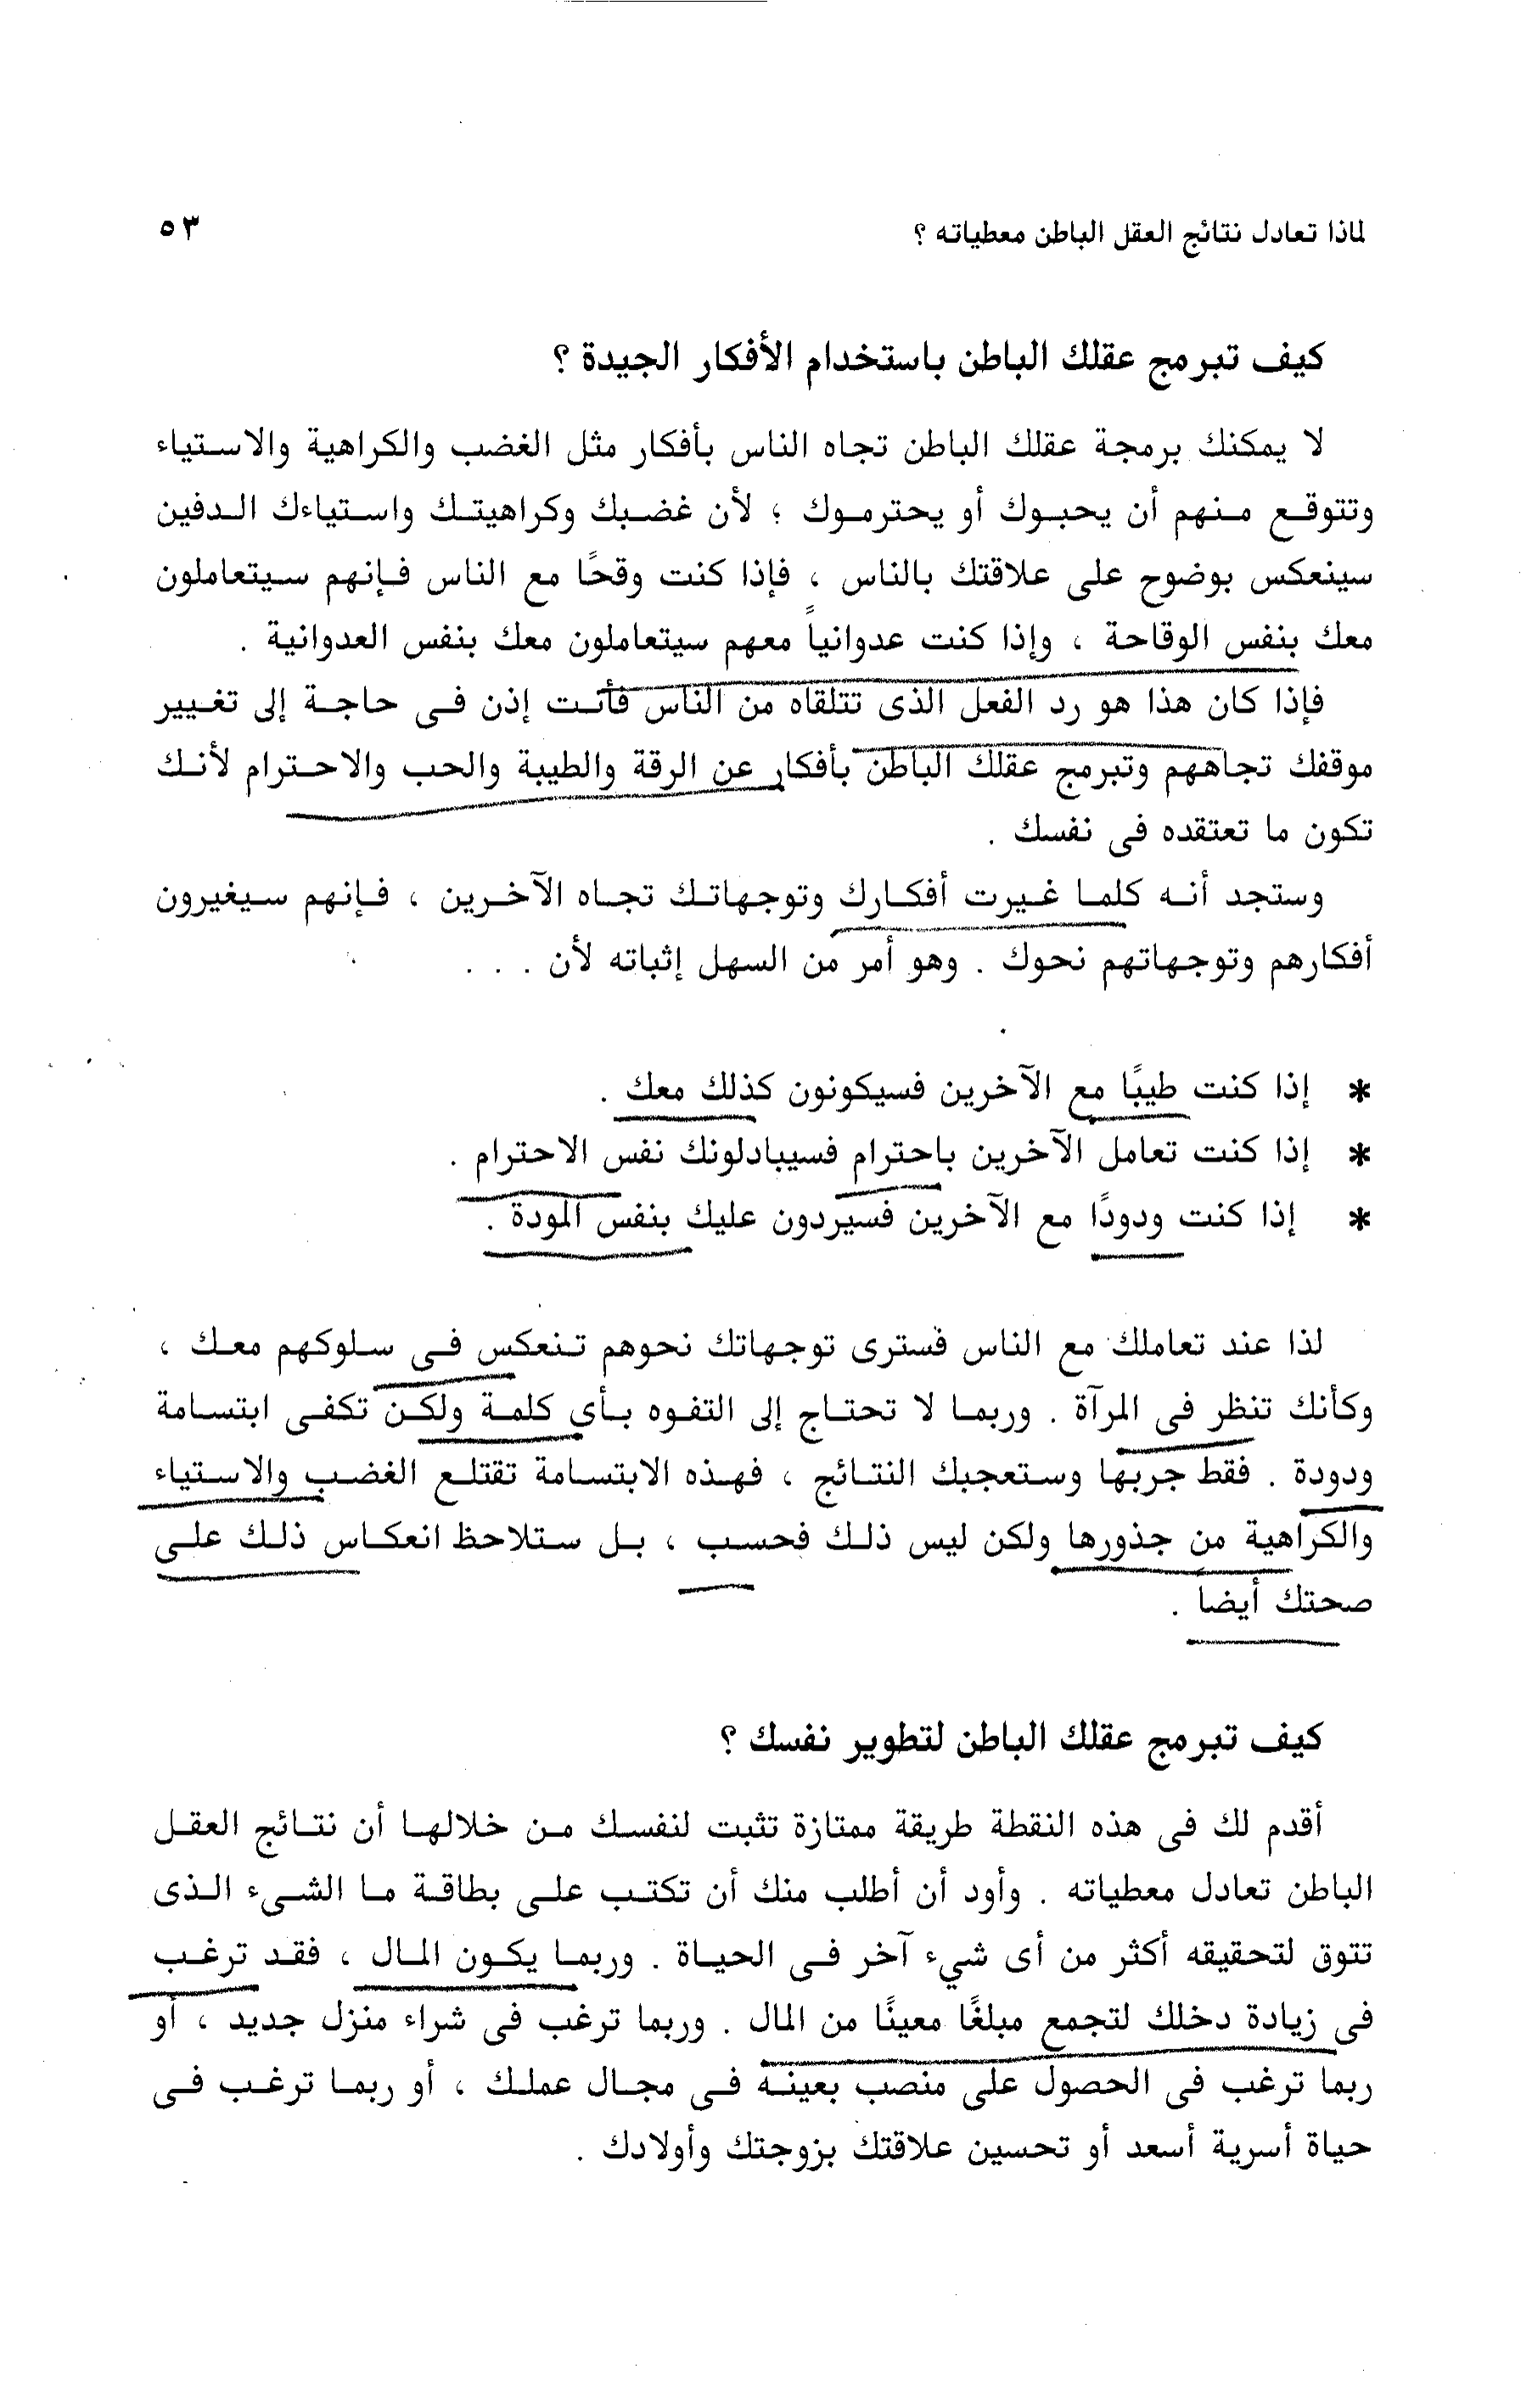 لماذا تعادل نتائج العقل الباطن معطياته ؟ ٥٣
كيف تبرمج عقلك الباطن باستخدام الأفكار الجيدة ؟
لا يمكنك برمجة عقلك الباطن تجاه الناس بأفكار مثل الغضب والكراهية والاستياء
وتتوقع منهم أن يحبوك أو يحترموك ؛ لأن غضبك وكراهيتك واستياءك الدفين
سينعكس بوضوح على علاقتك بالناس ، فإذا كنت وقحًا مع الناس فإنهم سيتعاملون
معك بنفس الوقاحة ، وإذا كنت عدوانياً معهم سيتعاملون معك بنفس العدوانية .
فإذا كان هذا هو رد الفعل الذى تتلقاه من الناس فأنت إذن فى حاجة إلى تغيير
موقفك تجاههم وتبرمج عقلك الباطن بأفكار عن الرقة والطيبة والحب والاحترام لأنك
تكون ما تعتقده فى نفسك .
وستجد أنه كلما غيرت أفكارك وتوجهاتك تجاه الآخرين ، فإنهم سيغيرون
أفكارهم وتوجهاتهم نحوك . وهو أمر من السهل إثباته لأن . . .
* إذا كنت طيبًا مع الآخرين فسيكونون كذلك معك .
* إذا كنت تعامل الآخرين باحترام فسيبادلونك نفس الاحترام .
* إذا كنت ودودًا مع الآخرين فسيردون عليك بنفس المودة .
لذا عند تعاملك مع الناس فسترى توجهاتك نحوهم تنعكس فى سلوكهم معك ،
وكأنك تنظر فى المرآة . وربما لا تحتاج إلى التفوه بأى كلمة ولكن تكفى ابتسامة
ودودة . فقط جربها وستعجبك النتائج ، فهذه الابتسامة تقتلع الغضب والاستياء
والكراهية من جذورها ولكن ليس ذلك فحسب ، بل ستلاحظ انعكاس ذلك على
صحتك أيضاً .
كيف تبرمج عقلك الباطن لتطوير نفسك ؟
أقدم لك فى هذه النقطة طريقة ممتازة تثبت لنفسك من خلالها أن نتائج العقل
الباطن تعادل معطياته . وأود أن أطلب منك أن تكتب على بطاقة ما الشىء الذى
تتوق لتحقيقه أكثر من أى شيء آخر فى الحياة . وربما يكون المال ، فقد ترغب
فى زيادة دخلك لتجمع مبلغًا معينًا من المال . وربما ترغب فى شراء منزل جديد ، أو
ربما ترغب فى الحصول على منصب بعينه فى مجال عملك ، أو ربما ترغب فى
حياة أسرية أسعد أو تحسين علاقتك بزوجتك وأولادك .